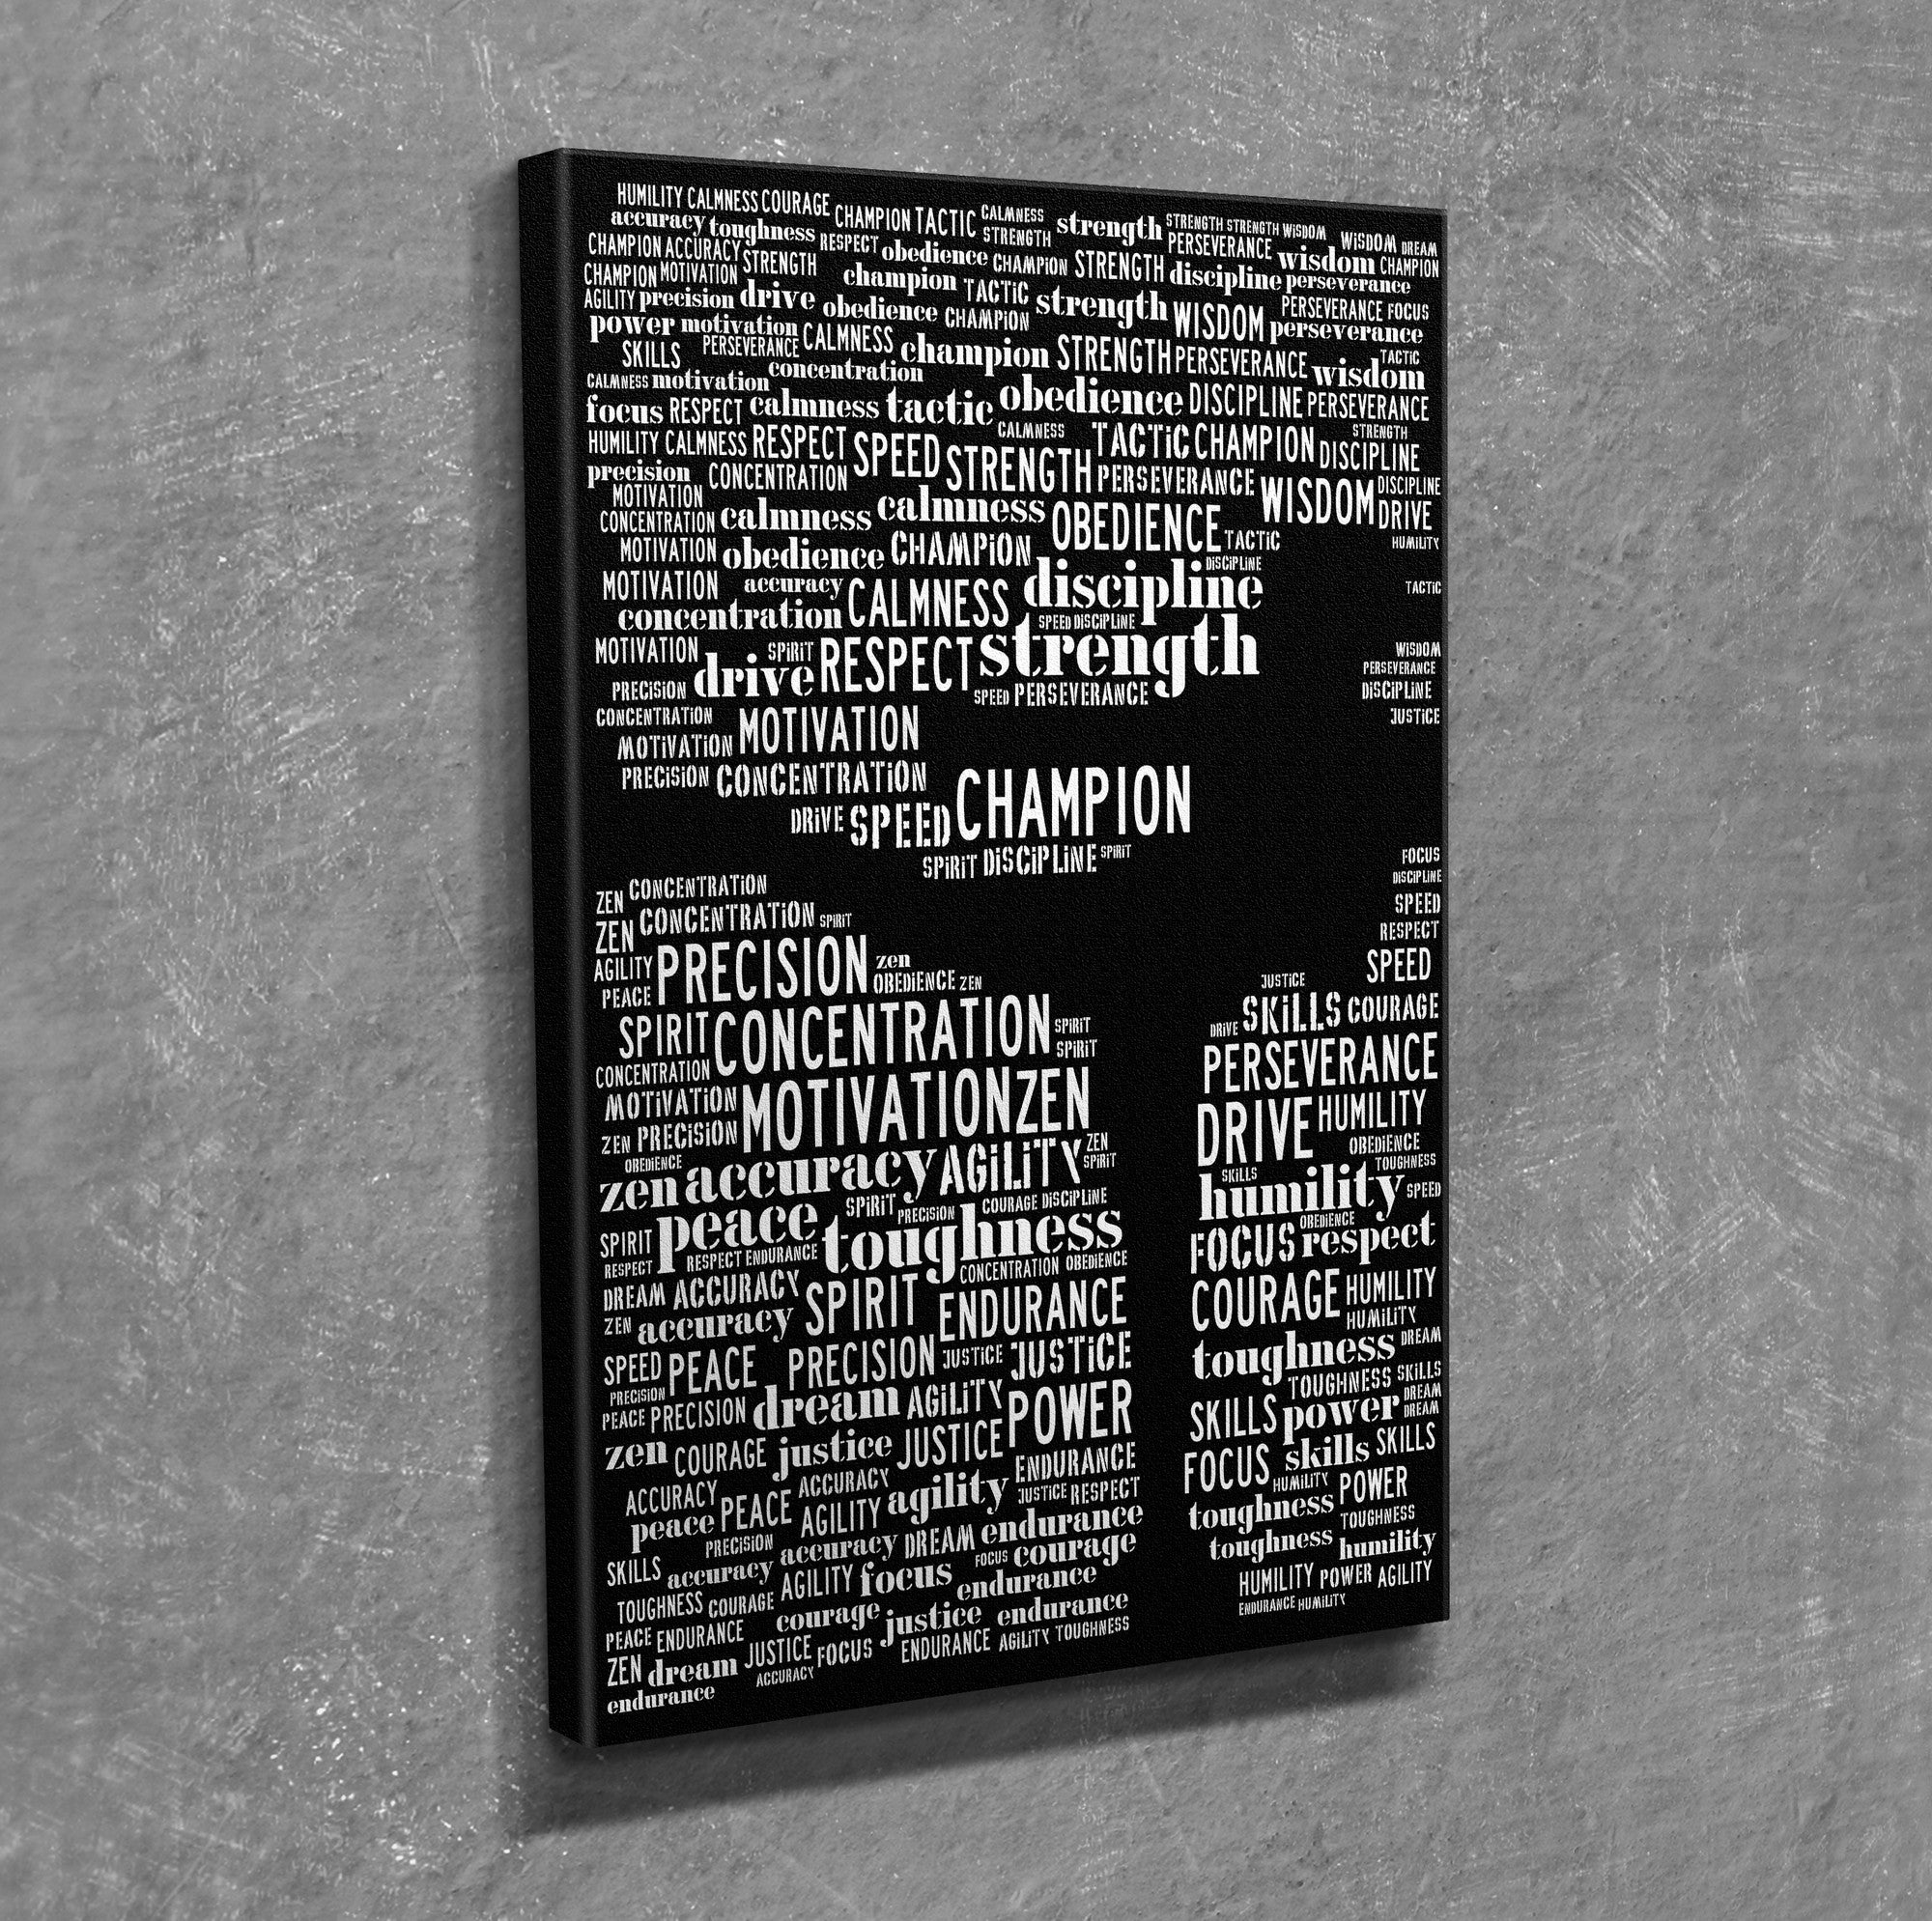 HUMILITY CALMNESS COURAGE
accuracy toughness CHAMPION TACTIC CALMNESS strength STRENGTH STRENGTH WISDOM WISDOM DREAM
CHAMPION ACCURACY RESPECT obedience STRENGTH CHAMPION STRENGTH PERSEVERANCE wisdom CHAMPION
CHAMPION MOTIVATION STRENGTH champion TACTIC discipline perseverance
AGILITY precision drive obedience CHAMPION strength WISDOM PERSEVERANCE FOCUS
power motivation CALMNESS perseverance
SKILLS PERSEVERANCE champion STRENGTH PERSEVERANCE wisdom TACTIC
CALMNESS motivation concentration
focus RESPECT calmness tactic obedience DISCIPLINE PERSEVERANCE
HUMILITY CALMNESS RESPECT SPEED CALMNESS TACTIC CHAMPION STRENGTH DISCIPLINE
precision CONCENTRATION STRENGTH PERSEVERANCE WISDOM DISCIPLINE DRIVE
MOTIVATION
CONCENTRATION calmness calmness OBEDIENCE TACTIC HUMILITY
MOTIVATION obedience CHAMPION DISCIPLINE
MOTIVATION accuracy CALMNESS discipline TACTIC
concentration SPEED DISCIPLINE
MOTIVATION SPIRIT RESPECT strength WISDOM
PERSEVERANCE
PRECISION drive SPEED PERSEVERANCE DISCIPLINE
CONCENTRATION MOTIVATION JUSTICE
MOTIVATION
PRECISION CONCENTRATION
DRIVE SPEED CHAMPION
SPIRIT DISCIPLINE SPIRIT FOCUS
ZEN CONCENTRATION DISCIPLINE
ZEN CONCENTRATION SPIRIT SPEED
RESPECT
AGILITY PRECISION zen SPEED
PEACE OBEDIENCE ZEN JUSTICE
SPIRIT CONCENTRATION SPIRIT DRIVE SKILLS COURAGE
SPIRIT
CONCENTRATION PERSEVERANCE
MOTIVATION MOTIVATION ZEN DRIVE HUMILITY
ZEN PRECISION ZEN OBEDIENCE
OBEDIENCE accuracy AGILITY SPIRIT SKILLS TOUGHNESS
zen humility SPEED
SPIRIT peace SPIRIT PRECISION COURAGE DISCIPLINE OBEDIENCE
RESPECT RESPECT ENDURANCE toughness FOCUS respect
CONCENTRATION OBEDIENCE
DREAM ACCURACY SPIRIT ENDURANCE COURAGE HUMILITY
ZEN accuracy HUMILITY
SPEED PEACE PRECISION JUSTICE JUSTICE toughness DREAM
PRECISION TOUGHNESS SKILLS
PEACE PRECISION dream AGILITY POWER SKILLS power DREAM
DREAM
zen COURAGE justice JUSTICE FOCUS skills SKILLS
ACCURACY ACCURACY ENDURANCE HUMILITY POWER
peace PEACE AGILITY agility JUSTICE RESPECT toughness TOUGHNESS
PRECISION accuracy DREAM endurance toughness humility
SKILLS accuracy AGILITY focus FOCUS courage
TOUGHNESS COURAGE endurance HUMILITY POWER AGILITY
PEACE ENDURANCE courage justice endurance ENDURANCE HUMILITY
ZEN dream JUSTICE FOCUS ENDURANCE AGILITY TOUGHNESS
ACCURACY
endurance